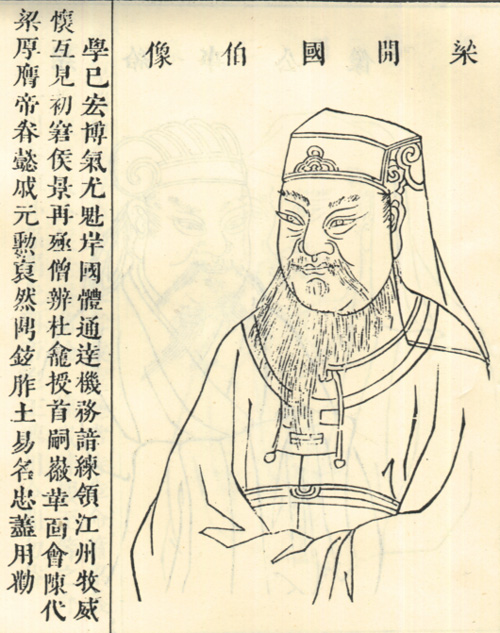 梁開國伯像
學已宏博氣尤魁岸國體通達機務諳練領江州牧威
懷互見初窘侯景再殛僧辨杜龕授首嗣徽華面會陳代
梁厚膺帝眷懿戚元勲裒然開鉉胙土易名忠藎用勸